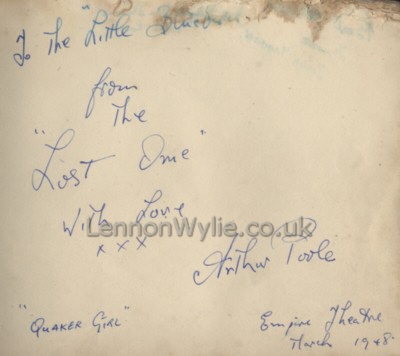 To The "Little
from
The
"Lost One"
With Love
x x x
LennonWylie.co.uk
Arthur Poole
"QUAKER GIRL"
Empire Theatre
March 1948.